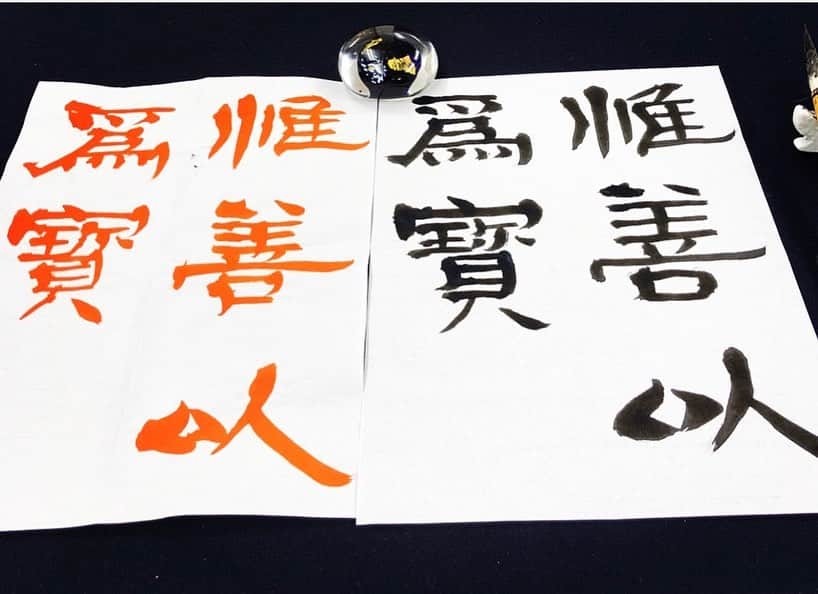 惟善以
爲寶
惟善以
爲寶